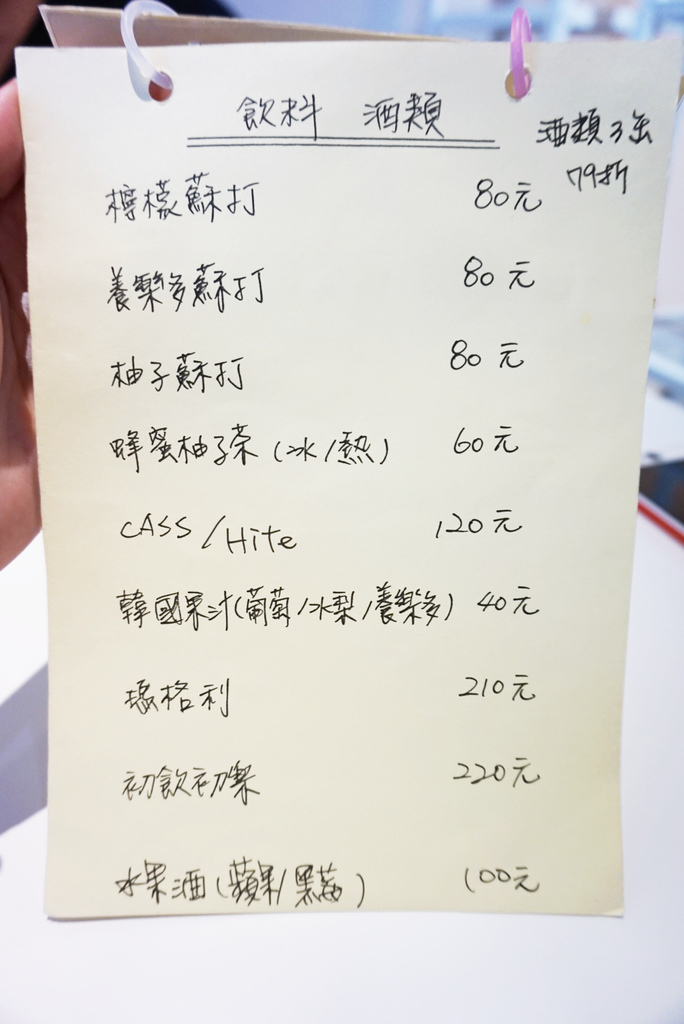 飲料 酒類
酒類3缶
79折
檸檬蘇打 80元
養樂多蘇打 80元
柚子蘇打 80元
蜂蜜柚子茶(冰/熱) 60元
CASS/Hite 120元
韓國果汁(葡萄/水梨/養樂多) 40元
瑪格利 210元
初飲初樂 220元
水果酒(蘋果/黑莓) 100元